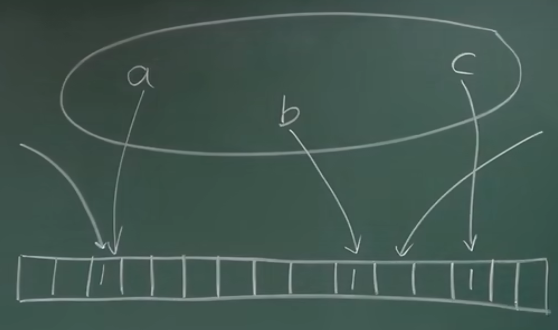 a
b
c
1 1 1